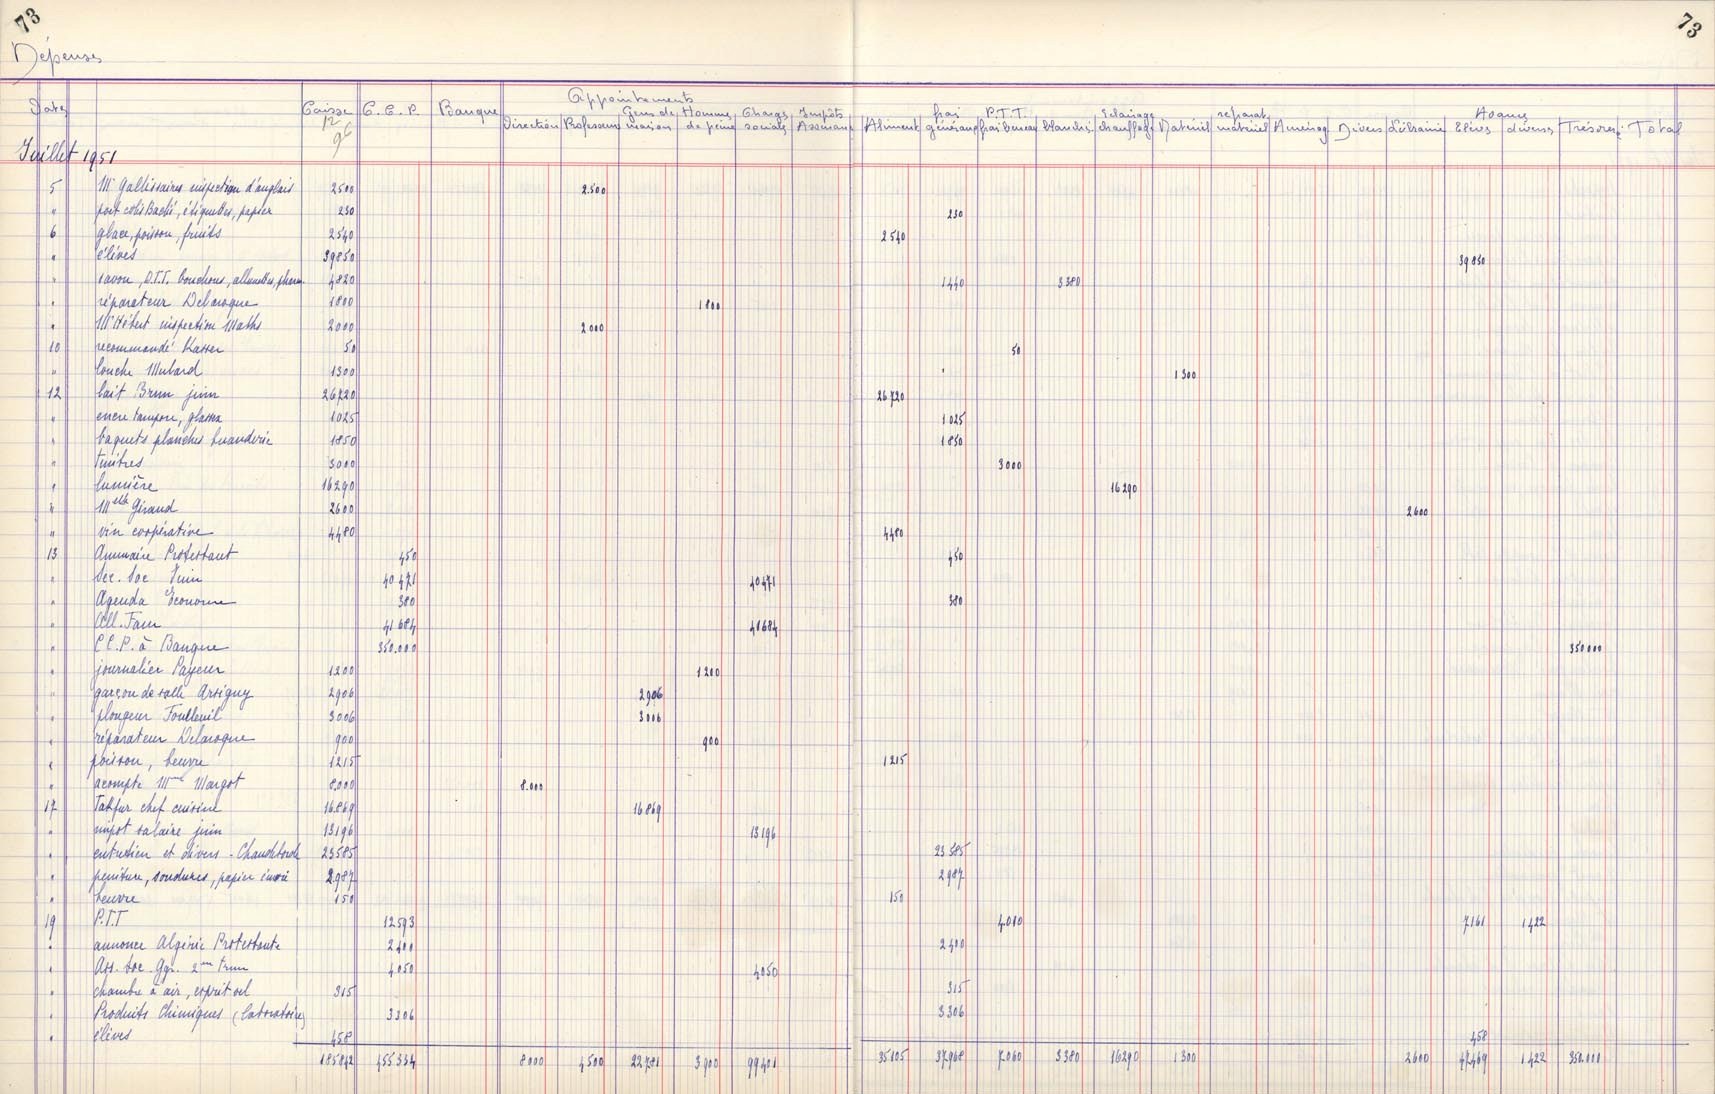 73
73
Dépenses
Appointements
Dates Caisse C.C.P. Banque Direction Professeurs Gens de maison Hommes de peine Charges sociales Impôts Assurances Aliment frais généraux P.T.T. frais bureau Blanchis. Eclairage chauffage Matériel réparat. matériel Aménag. Divers Librairie Avances Elèves diverses Trésorerie Total
12
96
Juillet 1951
5 Mr Gallissaires inspection d'anglais 2500 2.500
" port colis Bachi, étiquettes, papier 230 230
6 glace, poisson, fruits 2540 2540
" élèves 39850 39850
" savon, P.T.T. bouchons, allumettes, pharm. 4820 1440 3380
" réparateur Delaroque 1800 1800
" Mr Hébert inspection Maths 2000 2000
10 recommandé Kasser 50 50
" louche Mutard 1300 1300
12 lait Brun juin 26720 26720
" encre tampon, glaces 1025 1025
" baquets planches buanderie 1850 1850
" timbres 3000 3000
" lumière 16290 16290
" Melle Géraud 2600 2600
" vin coopérative 4480 4480
13 Annuaire Protestant 450 450
" Sec. Soc Juin 40471 40471
" Agenda Econome 380 380
" All. Fam 41684 41684
" C.C.P. à Banque 350.000 350000
" journalier Payeur 1200 1200
" garçon de salle Arsigny 2906 2906
" plongeur Fontteuil 3006 3006
" réparateur Delaroque 900 900
" poisson, beurre 1215 1215
" acompte Mme Margot 8.000 8.000
17 Takfur chef cuisine 16.869 16869
" impot salaire juin 13196 13196
" entretien et divers - 23585 23585
" peinture, soudures, papier 2987 2987
" beurre 150 150
19 P.T.T 12593 4010 7161 1422
" annonce Algérie Protestante 2400 2400
" Ass. Soc. Agr. 2me trim 4050 4050
" chambre à air, esprit sel 315 315
" Produits Chimiques (laboratoire) 3306 3306
" élèves 458 458
185842 455334 8000 4500 22781 3900 99401 35105 37968 7060 3380 16290 1300 2600 47469 1422 350.000